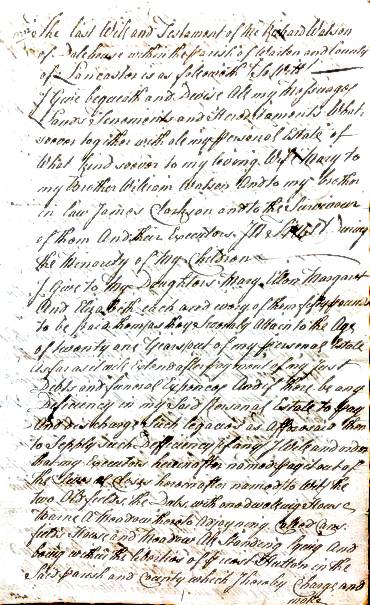 The Last Will and Testament of me Richard Watson
of Dalehouse within the Parish of Warton and County
of Lancaster is as followeth To Witt
I Give bequeath and Devise All my Messuages
Lands Tenements and Hereditaments What
soever together with all my Personal Estate of
What kind soever to my loving Wife Mary to
my Brother William Watson And to my brother
in law James Clarkson and to the Survivour
of them And their Executors In Trust During
the Menority of my Children
I Give to my Daughters Mary Ellen Margaret
And Elizabeth each and every of them fifty pounds
to be paid them as they Severaly Attain to the Age
of twenty one Years out of my personal Estate
As far as it will Extend after payment of my Just
Debts and funeral Expences And if there be any
Dificiency in my Said Personal Estate to pay
And discharge Such Legacies as Aforesaid then
to Supply Such Dificiency if any I Will and order
that my Executors hereinafter named pay it out of
the Closes hereinafter named to Wit the
two the Dales with
Barne A Meadow thereto Adjoyning Called
House and Meadow All Standing lying And
being within the of Priest Hutton in the
Said parish and County which I hereby Charge and
make